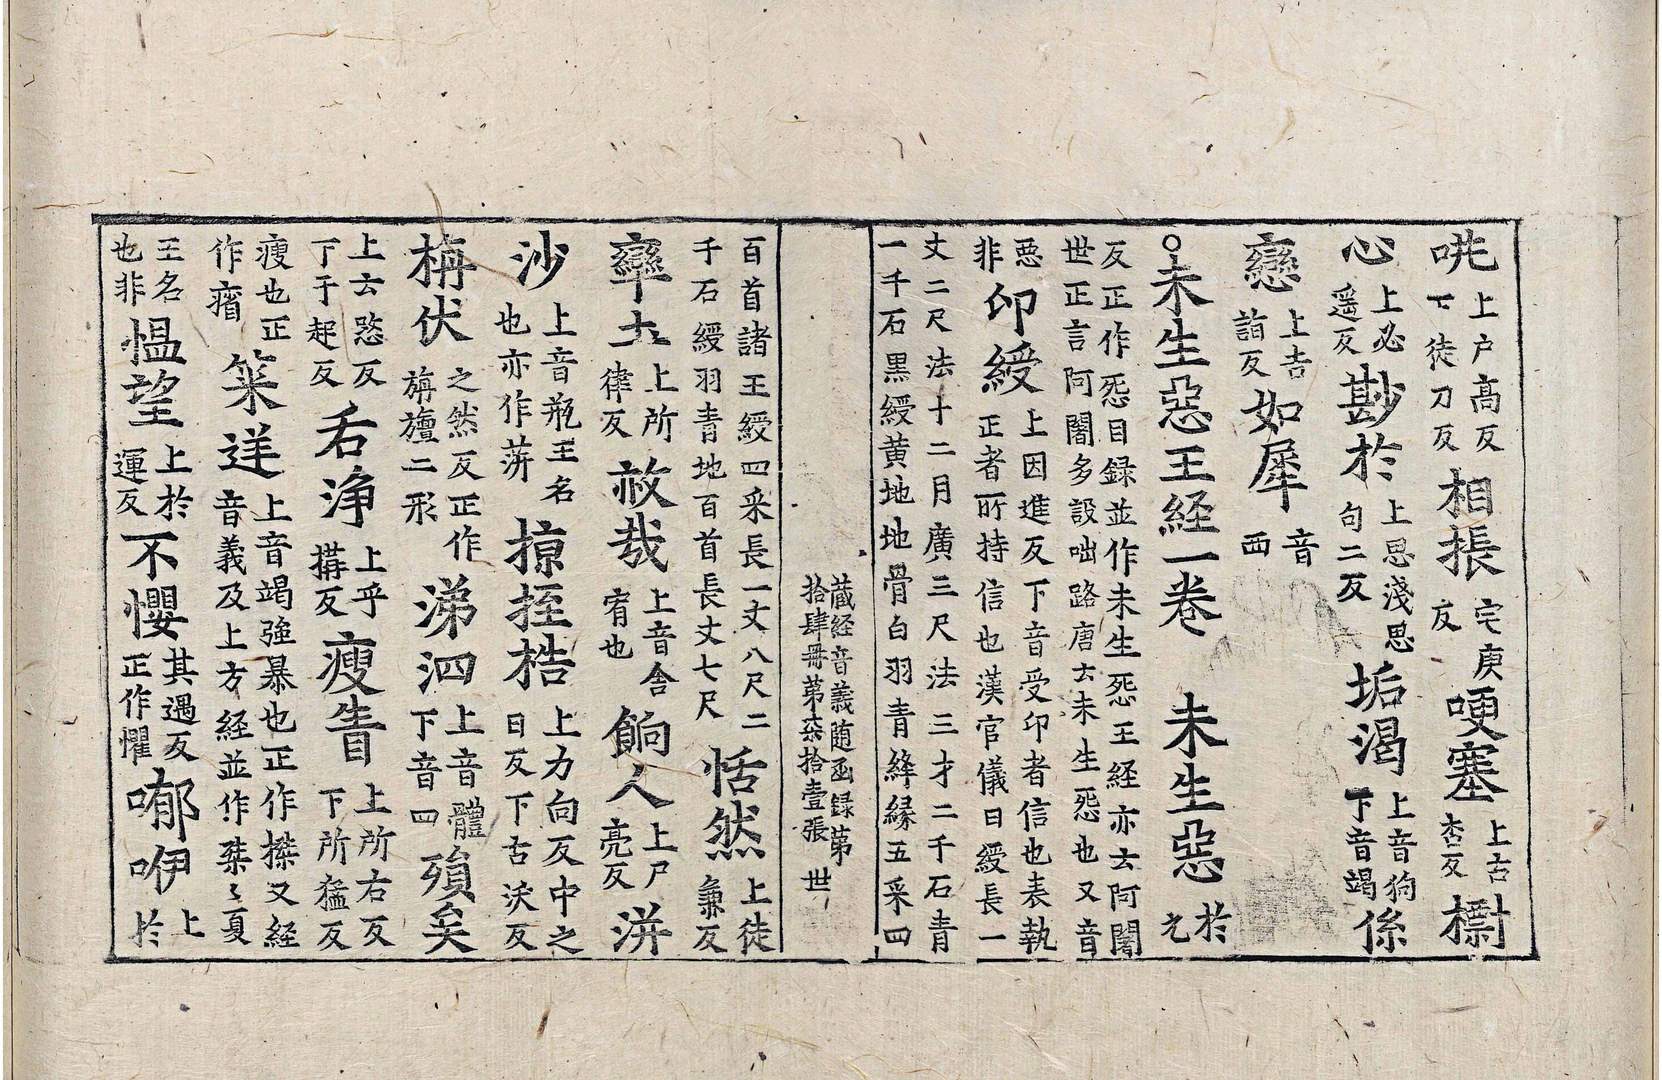 咷上户高反下徒刀反相掁宅庚反哽塞上古杏反㯽
心上必遥反尠於上思淺思句二反垢渴上音狗下音竭係
戀上吉詣反如犀音西
○未生惡王経一卷 未生惡於六
反正作惌目録並作未生惌王経亦云阿闍
世正言阿闍多設咄路唐云未生惌也又音
惡非印綬上因進反下音受印者信也表執正者所持信也漢官儀曰綬長一
丈二尺法十二月廣三尺法三才二千石青
一千石黑綬黄地地骨白羽青絳緣五采四
藏経音義随函録第
拾肆冊第柒拾壹張 世
百首諸王綬四采長一丈八尺二
千石綬羽青地百首長丈七尺恬然上徒兼反
率土上所律反赦哉上音舍宥也餉人上尸亮反洴
沙上音瓶王名也亦作蓱掠挃梏上力向反中之日反下古沃反
栴伏之然反正作旃㫋二形涕泗上音體下音四殞矣
上云愍反下于起反舌淨上乎搆反瘦眚上所右反下所猛反
瘦也正作㾪䇲送上音竭強暴也正作桀又経音義及上方経並作桀桀夏
王名也非愠望上於運反不懼其遇反正作懼唧咿上於